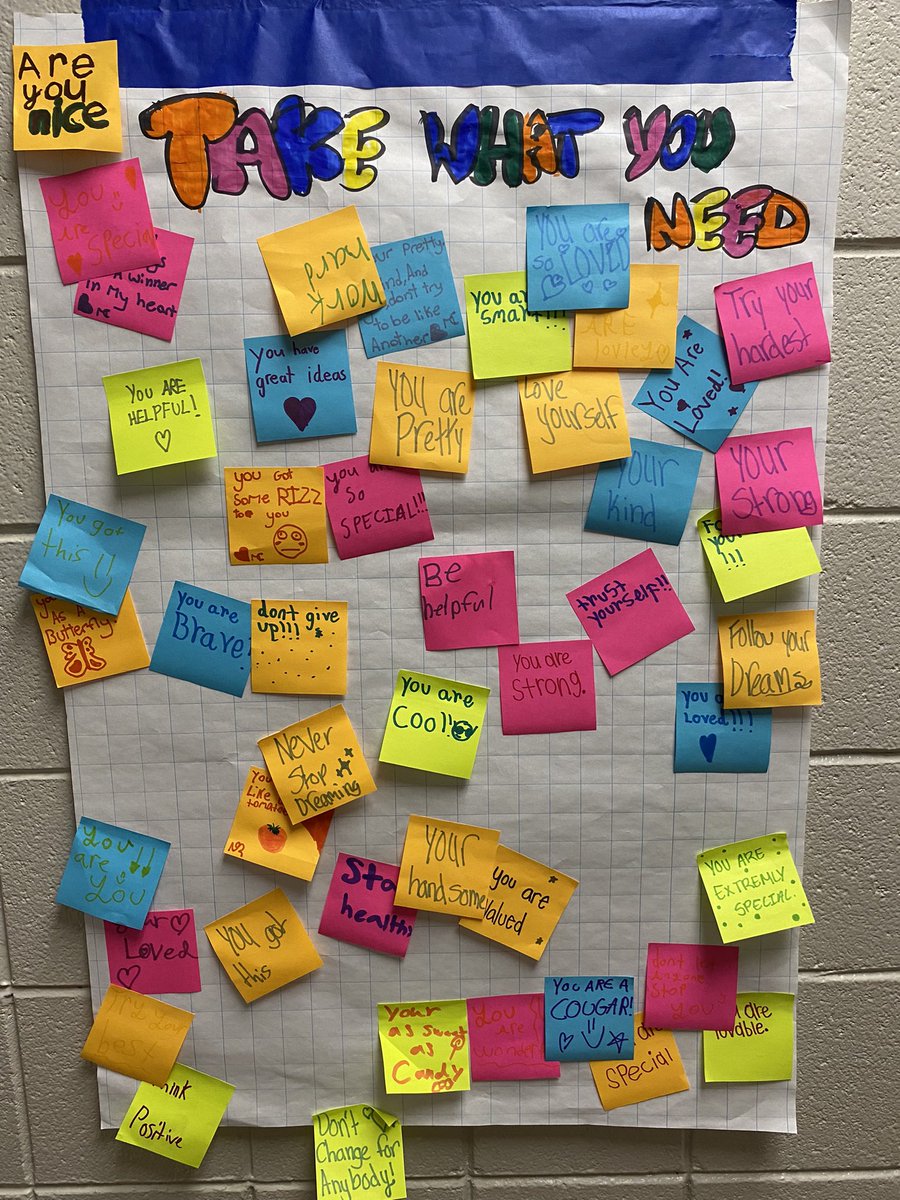 Are
you
nice
TAKE WHAT YOU
NEED
You
are
Special
A winner
In My heart
Work
hard
ur Pretty
kind, And
dont try
to be like
Another
You are
so LOVED
You a
Smart!!!
ARE
lovley
Try your
hardest
You Are
Loved!
You have
great ideas
You ARE
HELPFUL!
You are
Pretty
Love
yourself
Your
Kind
Your
Strong
you Got
Some RIZZ
to you
MC
you a
So
SPECIAL!!!
Fo
your
!!!
You got
this
As A
Butterfly
You are
Brave!
dont give
up!!!
Be
helpful
trust
yourself!!
You are
Strong.
Follow your
Dreams
You a
Loved!!!
You are
Cool!
Never
Stop
Dreaming
You
Like
tomato
You
are
You
!!
Stay
healthy
Your
handsome
You are
Valued
YOU ARE
EXTREMLY
SPECIAL.
Your
Loved
You got
this
Try your
best
Think
Positive
Your
as sweet
as
Candy
You
are
wonder
YOU ARE A
COUGAR!
are
special
dont let
Anyone
Stop
You
are
lovable.
Don't
Change for
Anybody!